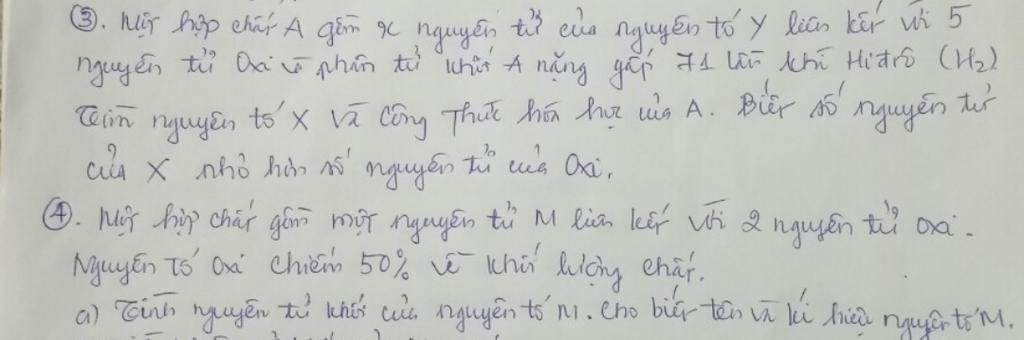 ③. Một hợp chất A gồm x nguyên tử của nguyên tố Y liên kết với 5
nguyên tử Oxi và phân tử khối A nặng gấp 71 lần khí Hiđrô (H₂)
Tìm nguyên tố X và Công Thức hóa học của A. Biết số nguyên tử
của X nhỏ hơn số nguyên tử của Oxi.
④. Một hợp chất gồm một nguyên tử M liên kết với 2 nguyên tử oxi.
Nguyên Tố Oxi chiếm 50% về khối lượng chất.
a) Tính nguyên tử khối của nguyên tố M. Cho biết tên và kí hiệu nguyên tố M.